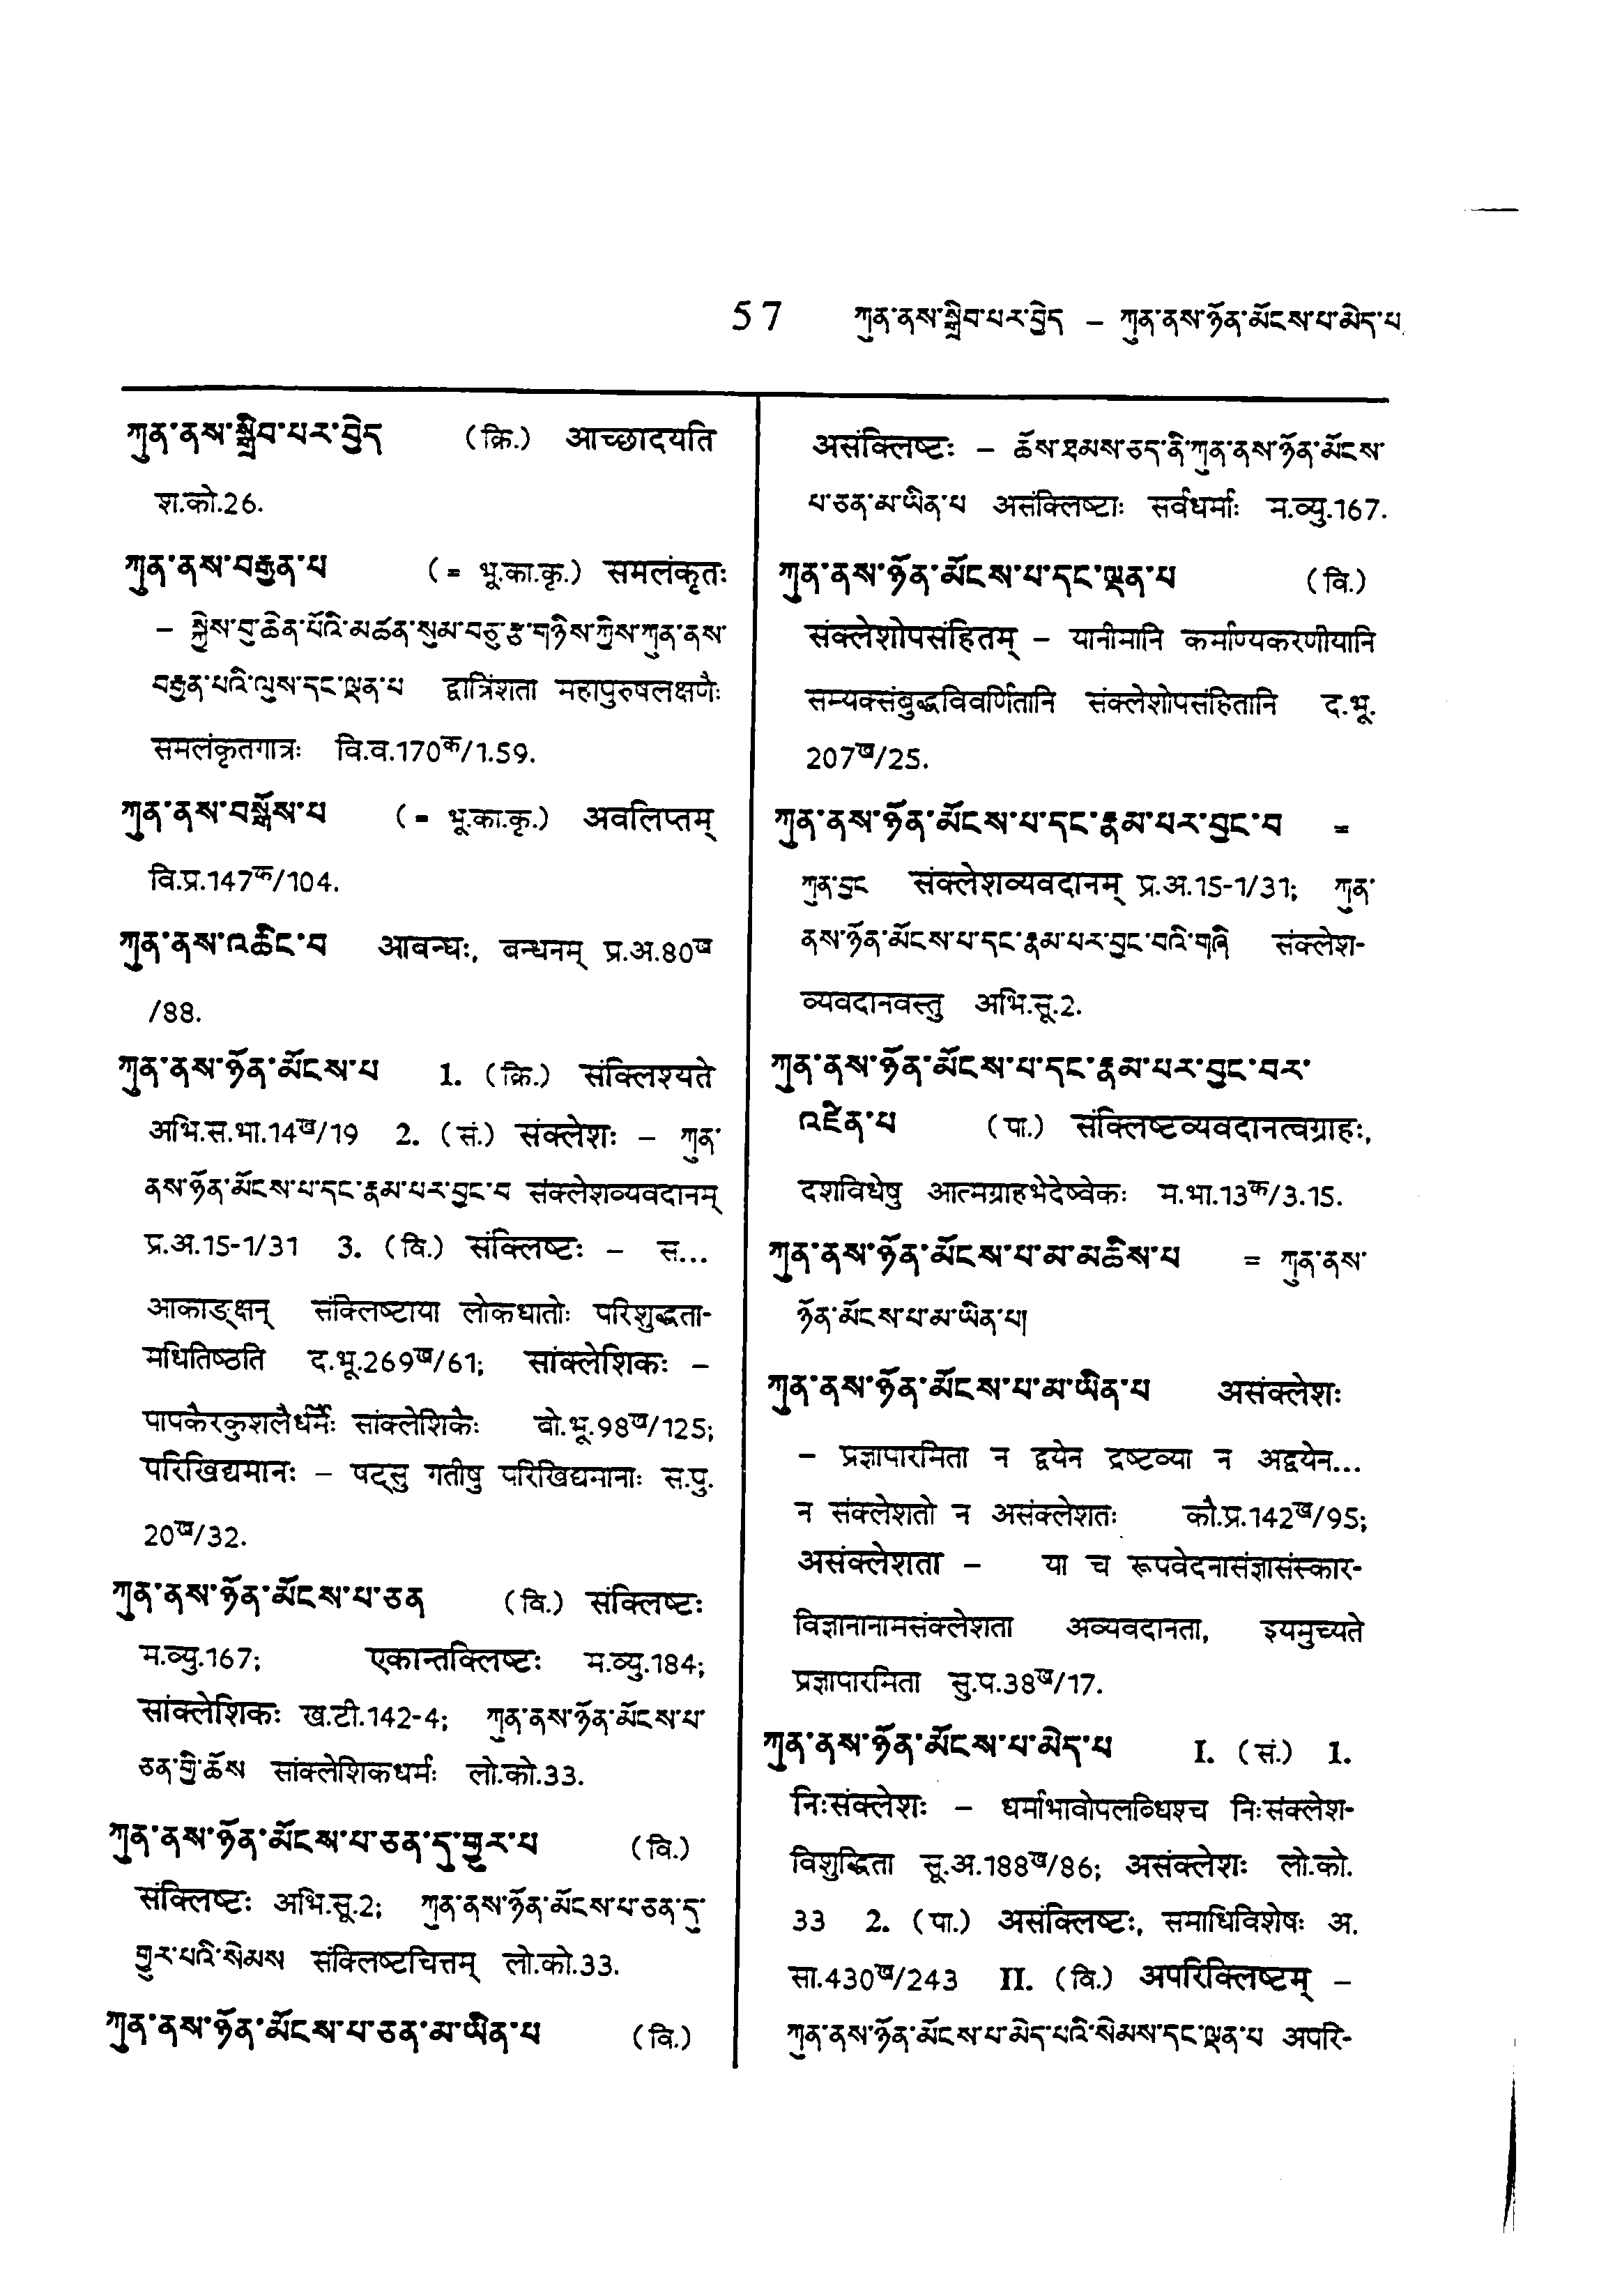 57 ཀུན་ནས་སྒྲིབ་པར་བྱེད – ཀུན་ནས་ཉོན་མོངས་པ་མེད་པ
ཀུན་ནས་སྒྲིབ་པར་བྱེད (क्रि.) आच्छादयति
श.को.26.
ཀུན་ནས་བརྒྱན་པ (= भू.का.कृ.) समलंकृतः
– སྐྱེས་བུ་ཆེན་པོའི་མཚན་སུམ་བཅུ་རྩ་གཉིས་ཀྱིས་ཀུན་ནས་
བརྒྱན་པའི་ལུས་དང་ལྡན་པ द्वात्रिंशता महापुरुषलक्षणैः
समलंकृतगात्रः वि.व.170क/1.59.
ཀུན་ནས་བསྒོས་པ (= भू.का.कृ.) अवलिप्तम्
वि.प्र.147क/104.
ཀུན་ནས་འཆིང་བ आबन्धः, बन्धनम् प्र.अ.80ख
/88.
ཀུན་ནས་ཉོན་མོངས་པ 1. (क्रि.) संक्लिश्यते
अभि.स.भा.14ख/19 2. (सं.) संक्लेशः – ཀུན་
ནས་ཉོན་མོངས་པ་དང་རྣམ་པར་བྱང་བ संक्लेशव्यवदानम्
प्र.अ.15-1/31 3. (वि.) संक्लिष्टः – स...
आकाङ्क्षन् संक्लिष्टाया लोकधातोः परिशुद्धता-
मधितिष्ठति द.भू.269ख/61; सांक्लेशिकः –
पापकैरकुशलैर्धर्मैः सांक्लेशिकैः बो.भू.98ख/125;
परिखिद्यमानः – षट्सु गतीषु परिखिद्यमानाः स.पु.
20ख/32.
ཀུན་ནས་ཉོན་མོངས་པ་ཅན (वि.) संक्लिष्टः
म.व्यु.167; एकान्तक्लिष्टः म.व्यु.184;
सांक्लेशिकः ख.टी.142-4; ཀུན་ནས་ཉོན་མོངས་པ་
ཅན་གྱི་ཆོས सांक्लेशिकधर्मः लो.को.33.
ཀུན་ནས་ཉོན་མོངས་པ་ཅན་དུ་གྱུར་པ (वि.)
संक्लिष्टः अभि.सू.2; ཀུན་ནས་ཉོན་མོངས་པ་ཅན་དུ་
གྱུར་པའི་སེམས संक्लिष्टचित्तम् लो.को.33.
ཀུན་ནས་ཉོན་མོངས་པ་ཅན་མ་ཡིན་པ (वि.)
असंक्लिष्टः – ཆོས་ཐམས་ཅད་ནི་ཀུན་ནས་ཉོན་མོངས་
པ་ཅན་མ་ཡིན་པ असंक्लिष्टाः सर्वधर्माः म.व्यु.167.
ཀུན་ནས་ཉོན་མོངས་པ་དང་ལྡན་པ (वि.)
संक्लेशोपसंहितम् – यानीमानि कर्माण्यकरणीयानि
सम्यक्संबुद्धविवर्णितानि संक्लेशोपसंहितानि द.भू.
207ख/25.
ཀུན་ནས་ཉོན་མོངས་པ་དང་རྣམ་པར་བྱང་བ =
ཀུན་བྱང संक्लेशव्यवदानम् प्र.अ.15-1/31; ཀུན་
ནས་ཉོན་མོངས་པ་དང་རྣམ་པར་བྱང་བའི་གཞི संक्लेश-
व्यवदानवस्तु अभि.सू.2.
ཀུན་ནས་ཉོན་མོངས་པ་དང་རྣམ་པར་བྱང་བར་
འཛིན་པ (पा.) संक्लिष्टव्यवदानत्वग्राहः,
दशविधेषु आत्मग्राहभेदेष्वेकः म.भा.13क/3.15.
ཀུན་ནས་ཉོན་མོངས་པ་མ་མཆིས་པ = ཀུན་ནས་
ཉོན་མོངས་པ་མ་ཡིན་པ།
ཀུན་ནས་ཉོན་མོངས་པ་མ་ཡིན་པ असंक्लेशः
– प्रज्ञापारमिता न द्वयेन द्रष्टव्या न अद्वयेन...
न संक्लेशतो न असंक्लेशतः कौ.प्र.142ख/95;
असंक्लेशता – या च रूपवेदनासंज्ञासंस्कार-
विज्ञानानामसंक्लेशता अव्यवदानता, इयमुच्यते
प्रज्ञापारमिता सु.प.38ख/17.
ཀུན་ནས་ཉོན་མོངས་པ་མེད་པ I. (सं.) 1.
निःसंक्लेशः – धर्माभावोपलब्धिश्च निःसंक्लेश-
विशुद्धिता सू.अ.188ख/86; असंक्लेशः लो.को.
33 2. (पा.) असंक्लिष्टः, समाधिविशेषः अ.
सा.430ख/243 II. (वि.) अपरिक्लिष्टम् –
ཀུན་ནས་ཉོན་མོངས་པ་མེད་པའི་སེམས་དང་ལྡན་པ अपरि-